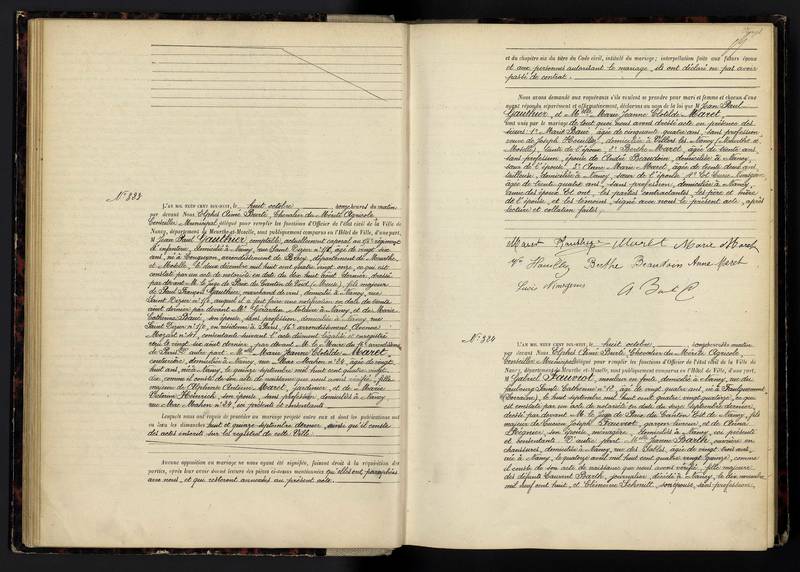 N° 323
L'AN MIL NEUF CENT DIX-HUIT, le huit octobre, onze heures du matin
par devant Nous Elphel Aimé Barlé, Chevalier du Mérite Agricole,
Conseiller Municipal délégué pour remplir les fonctions d'Officier de l'état civil de la Ville de
Nancy, département de Meurthe-et-Moselle, sont publiquement comparus en l'Hôtel de Ville, d'une part,
M Jean Paul Gauthier, comptable, actuellement caporal au régiment
d'infanterie, domicilié à Nancy, rue Saint Dizier n° 170, âgé de vingt six
ans, né à arrondissement de Briey, département de Meurthe
et Moselle, le deux décembre mil huit cent quatre vingt onze, ce qui est
constaté par un acte de notoriété en date du dix huit août dernier, dressé
par devant M. le Juge de Paix du Canton de Void (Meuse), fils majeur
de Paul François Gauthier, marchand de vins, domicilié à Nancy, rue
Saint Dizier n° 170, auquel il a fait faire une notification en date du trente
août dernier par devant Me Girardin, Notaire à Nancy, et de Marie
Catherine son épouse, sans profession, domiciliée à Nancy, rue
Saint Dizier n° 170, en résidence à Paris, 16e arrondissement, Avenue
Mozart n° 41, consentante suivant l'acte dûment légalisé et enregistré
reçu le vingt six août dernier, par devant M. le Maire du 16e arrondissement
de Paris. D'autre part, et Melle Marie Jeanne Clotilde Maret,
couturière, domiciliée à Nancy, rue Mac Mahon n° 24, âgée de vingt
huit ans, née à Nancy, le quinze septembre mil huit cent quatre vingt
dix, comme il conste de son acte de naissance que nous avons vérifié, fille
majeure de Alphonse Antoine Maret, jardinier, et de Marie
Victorine Heinrich, son épouse, sans profession, domiciliés à Nancy,
rue Mac Mahon n° 24, ici présents et consentants.
Lesquels nous ont requis de procéder au mariage projeté entre eux et dont les publications ont
eu lieu les dimanches huit et quinze septembre dernier, ainsi qu'il conste
des actes inscrits sur les registres de cette Ville.
Aucune opposition au mariage ne nous ayant été signifiée, faisant droit à la réquisition des
parties, après leur avoir donné lecture des pièces ci-dessus mentionnées qu'elles ont paraphées
avec nous, et qui resteront annexées au présent acte,
et du chapitre six du titre du Code civil, intitulé du mariage; interpellation faite aux futurs époux
et aux personnes autorisant le mariage, ils ont déclaré ne pas avoir
passé de contrat.
Nous avons demandé aux requérants s'ils veulent se prendre pour mari et femme et chacun d'eux
ayant répondu séparément et affirmativement, déclarons au nom de la loi que M Jean Paul
Gauthier, et Melle Marie Jeanne Clotilde Maret,
sont unis par le mariage de tout quoi nous avons dressé acte en présence des
sieurs: 1° Marie âgée de cinquante quatre ans, sans profession,
veuve de Joseph domiciliée à Villers les Nancy (Meurthe et
Moselle), tante de l'épouse, 2° Berthe Maret, âgée de trente ans,
sans profession, épouse de André Beaudoin, domiciliée à Nancy,
sœur de l'épouse, 3° Anne Marie Maret, âgée de trente deux ans,
tailleuse, domiciliée à Nancy, sœur de l'épouse, 4° et Lucie
âgée de trente quatre ans, sans profession, domiciliée à Nancy,
amie des époux. Et ont, les parties contractantes, les père et mère
de l'épouse et les témoins, signé avec nous le présent acte, après
lecture et collation faites.
Maret Gauthier Maret Marie Maret
Berthe Beaudoin Anne Maret
Lucie
N° 324
L'AN MIL NEUF CENT DIX-HUIT, le huit octobre, onze heures du matin
par devant Nous Elphel Aimé Barlé, Chevalier du Mérite Agricole,
Conseiller Municipal délégué pour remplir les fonctions d'Officier de l'état civil de la Ville de
Nancy, département de Meurthe-et-Moselle, sont publiquement comparus en l'Hôtel de Ville, d'une part,
M Gabriel Fauviot, mouleur en fonte, domicilié à Nancy, rue du
faubourg Sainte Catherine n° 12, âgé de vingt quatre ans, né à Faulquemont
(Lorraine), le huit septembre mil huit cent quatre vingt quatorze, ce qui
est constaté par un acte de notoriété en date du vingt septembre dernier,
dressé par devant M. le Juge de Paix du Canton Est de Nancy, fils
majeur de Joseph Fauviot, garçon livreur, et de Anna
son épouse, ménagère, domiciliés à Nancy, ici présents
et consentants. D'autre part Melle Jeanne Barth, ouvrière en
chaussures, domiciliée à Nancy, rue des Sables, âgée de vingt trois ans,
née à Nancy, le quatorze avril mil huit cent quatre vingt quinze, comme
il conste de son acte de naissance que nous avons vérifié, fille majeure
des défunts Laurent Barth, journalier, décédé à Nancy, le dix novembre
mil neuf cent huit, et Clémence Schmitt, son épouse, sans profession,